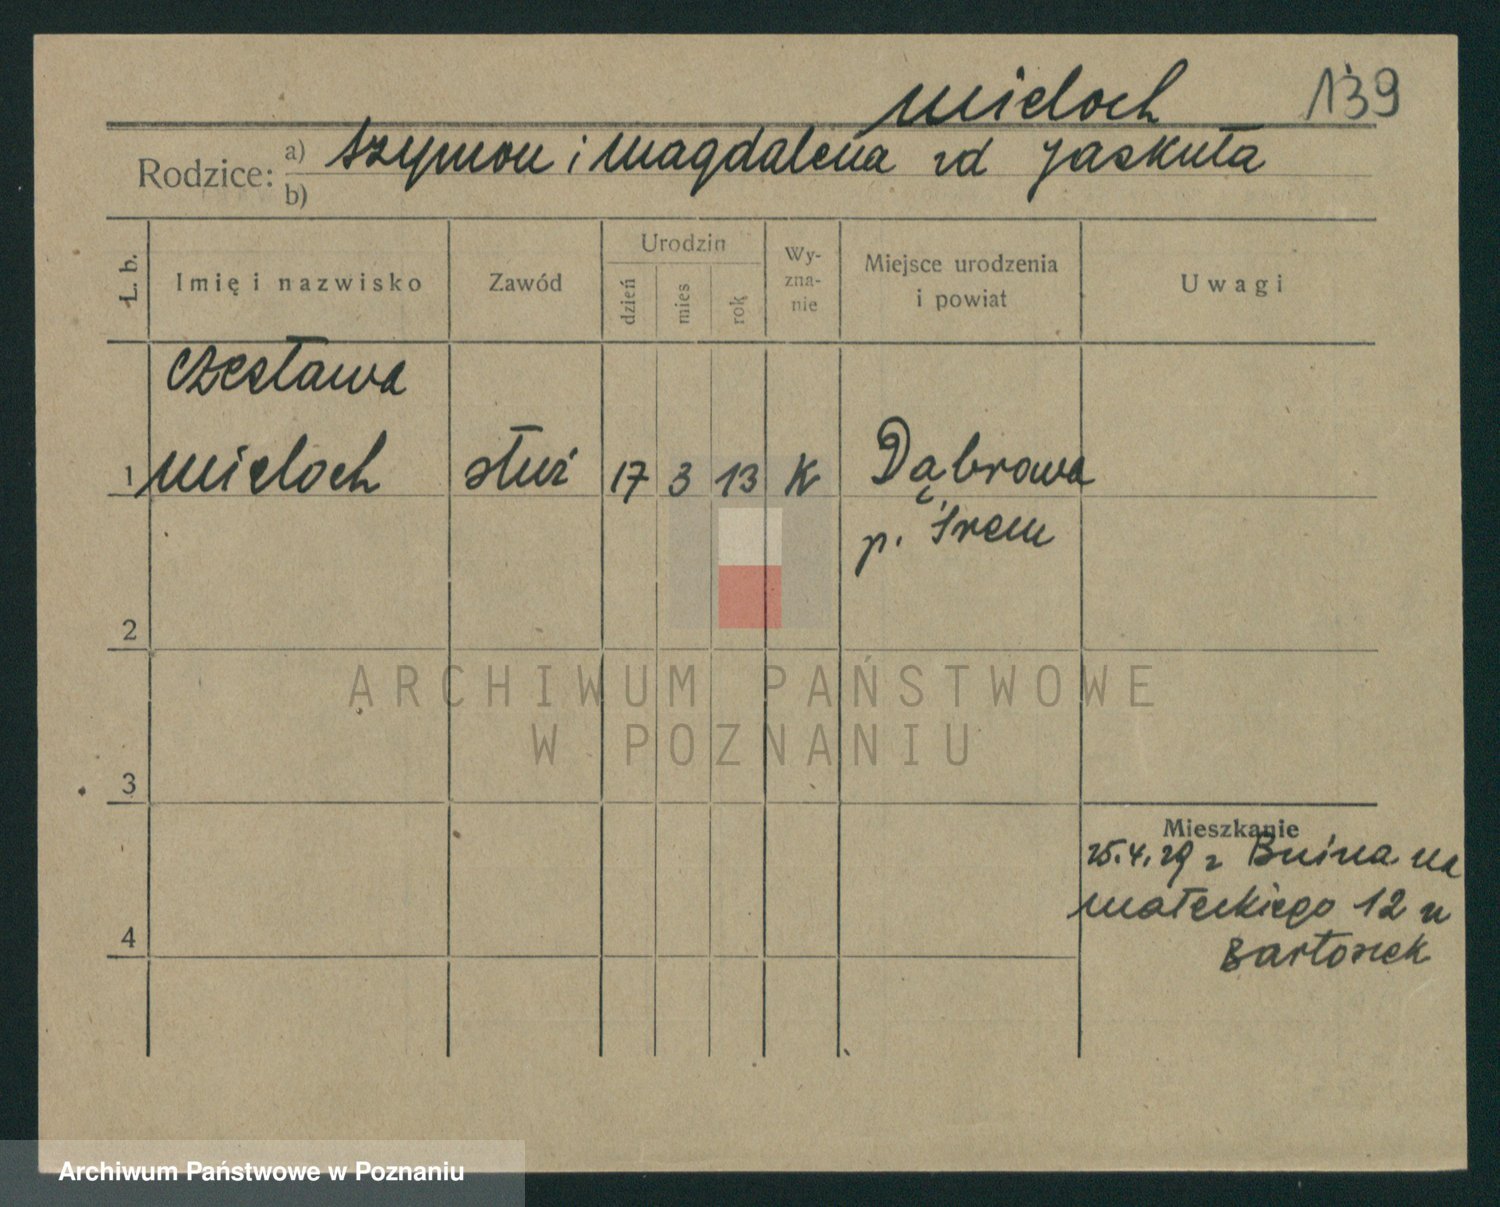 Mieloch 139
Rodzice: a) Szymon i Magdalena zd Jaskuła
b)
L. b.
Imię i nazwisko
Zawód
Urodzin
dzień
mies
rok
Wy-
zna-
nie
Miejsce urodzenia
i powiat
Uwagi
Czesława
1 Mieloch służ 17 3 13 K Dąbrowa
p. Śrem
2
ARCHIWUM PAŃSTWOWE
W POZNANIU
3
Mieszkanie
25.4.29 z Bnina na
Małeckiego 12 u
4
Bartoszek
Archiwum Państwowe w Poznaniu